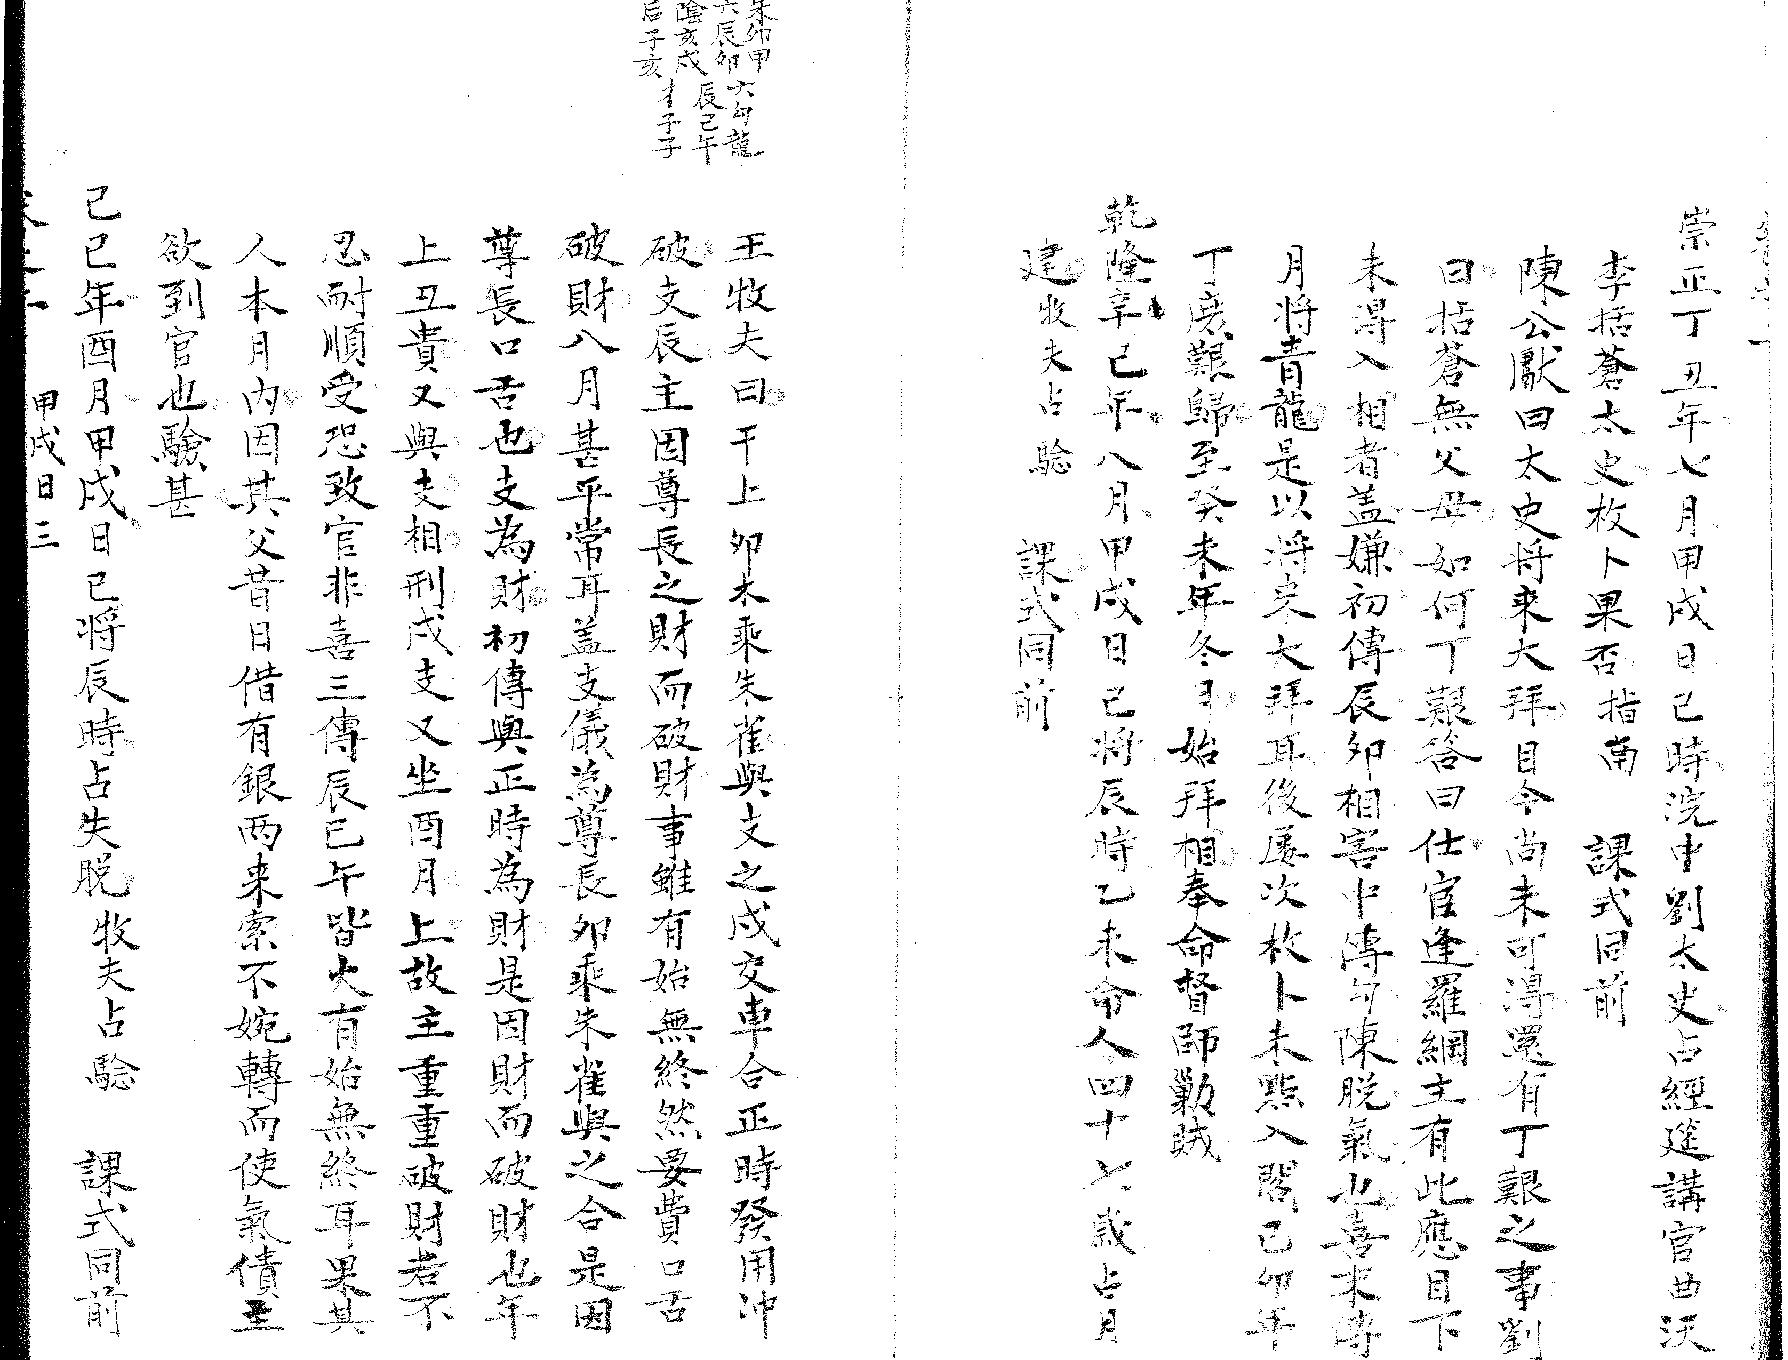 崇正丁丑年七月甲戌日巳時浣中劉太史占經筵講官曲沃
李括蒼太史枚卜果否指南　課式同前
陳公獻曰太史將來大拜目今尚未可淂還有丁艱之事劉
曰括蒼無父母如何丁艱答曰仕宦逢羅網主有此應目下
未淂入相者盖嫌初傳辰卯相害中傳勾陳脫氣也喜末傳
月將青龍是以將来大拜耳後屡次枚卜未點入閣己卯年
丁廣艱歸至癸未年冬月始拜相奉命督師勦賊
乾隆辛巳年八月甲戌日巳將辰時乙未命人四十七歲占月
建牧夫占驗　課式同前
未卯甲
六辰卯
陰亥戌
后子亥
六勾龍
辰巳午
才子子
王牧夫曰干上卯木乘朱雀與支之戌交車合正時發用冲
破支辰主因尊長之財而破財事雖有始無終然要費口舌
破財八月甚平常耳盖支儀為尊長卯乘朱雀與之合是因
尊長口舌也支為財初傳與正時為財是因財而破財也年
上丑貴又與支相刑戌支又坐酉月上故主重重破財若不
忍耐順受恐致官非喜三傳辰巳午皆火有始無終耳果其
人本月内因其父昔日借有銀两来索不婉轉而使氣債主
欲到官也驗甚
己巳年酉月甲戌日巳將辰時占失脫牧夫占驗　課式同前
甲戌日三